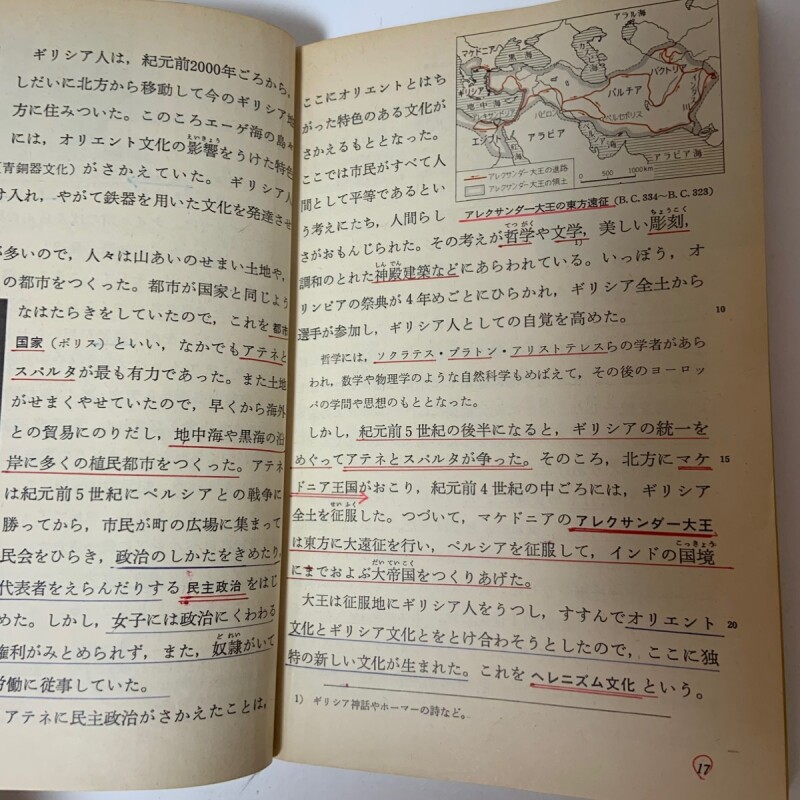 ギリシア人は，紀元前2000年ごろから，
しだいに北方から移動して今のギリシア地
方に住みついた。このころエーゲ海の島々
には，オリエント文化の影響をうけた特色
（青銅器文化）がさかえていた。ギリシア人
け入れ，やがて鉄器を用いた文化を発達させ
が多いので，人々は山あいのせまい土地や，
の都市をつくった。都市が国家と同じよう
なはたらきをしていたので，これを都市
国家（ポリス）といい，なかでもアテネと
スパルタが最も有力であった。また土地
がせまくやせていたので，早くから海外
との貿易にのりだし，地中海や黒海の沿
岸に多くの植民都市をつくった。アテネ
は紀元前5世紀にペルシアとの戦争に
勝ってから，市民が町の広場に集まって
民会をひらき，政治のしかたをきめたり，
代表者をえらんだりする民主政治をはじ
めた。しかし，女子には政治にくわわる
権利がみとめられず，また，奴隷がいて
労働に従事していた。
アテネに民主政治がさかえたことは，
ここにオリエントとはち
がった特色のある文化が
さかえるもととなった。
ここでは市民がすべて人
間として平等であるとい
う考えにたち，人間らし
さがおもんじられた。その考えが哲学や文学，美しい彫刻，
調和のとれた神殿建築などにあらわれている。いっぽう，オ
リンピアの祭典が4年めごとにひらかれ，ギリシア全土から
選手が参加し，ギリシア人としての自覚を高めた。
10
哲学には，ソクラテス・プラトン・アリストテレスらの学者があら
われ，数学や物理学のような自然科学もめばえて，その後のヨーロッ
パの学問や思想のもととなった。
しかし，紀元前5世紀の後半になると，ギリシアの統一を
めぐってアテネとスパルタが争った。そのころ，北方にマケ
15
ドニア王国がおこり，紀元前4世紀の中ごろには，ギリシア
全土を征服した。つづいて，マケドニアのアレクサンダー大王
は東方に大遠征を行い，ペルシアを征服して，インドの国境
にまでおよぶ大帝国をつくりあげた。
大王は征服地にギリシア人をうつし，すすんでオリエント
20
文化とギリシア文化とをとけ合わそうとしたので，ここに独
特の新しい文化が生まれた。これをヘレニズム文化という。
1） ギリシア神話やホーマーの詩など。
17
アラル海
マケドニア
黒海
カスピ海
ギリシア
地中海
バクトリア
パルチア
インダス川
アレクサンドリア
バビロン
ペルセポリス
エジプト
アラビア
アラビア海
アレクサンダー大王の進路
アレクサンダー大王の領土
0 500 1000km
アレクサンダー大王の東方遠征（B.C.334～B.C.323）